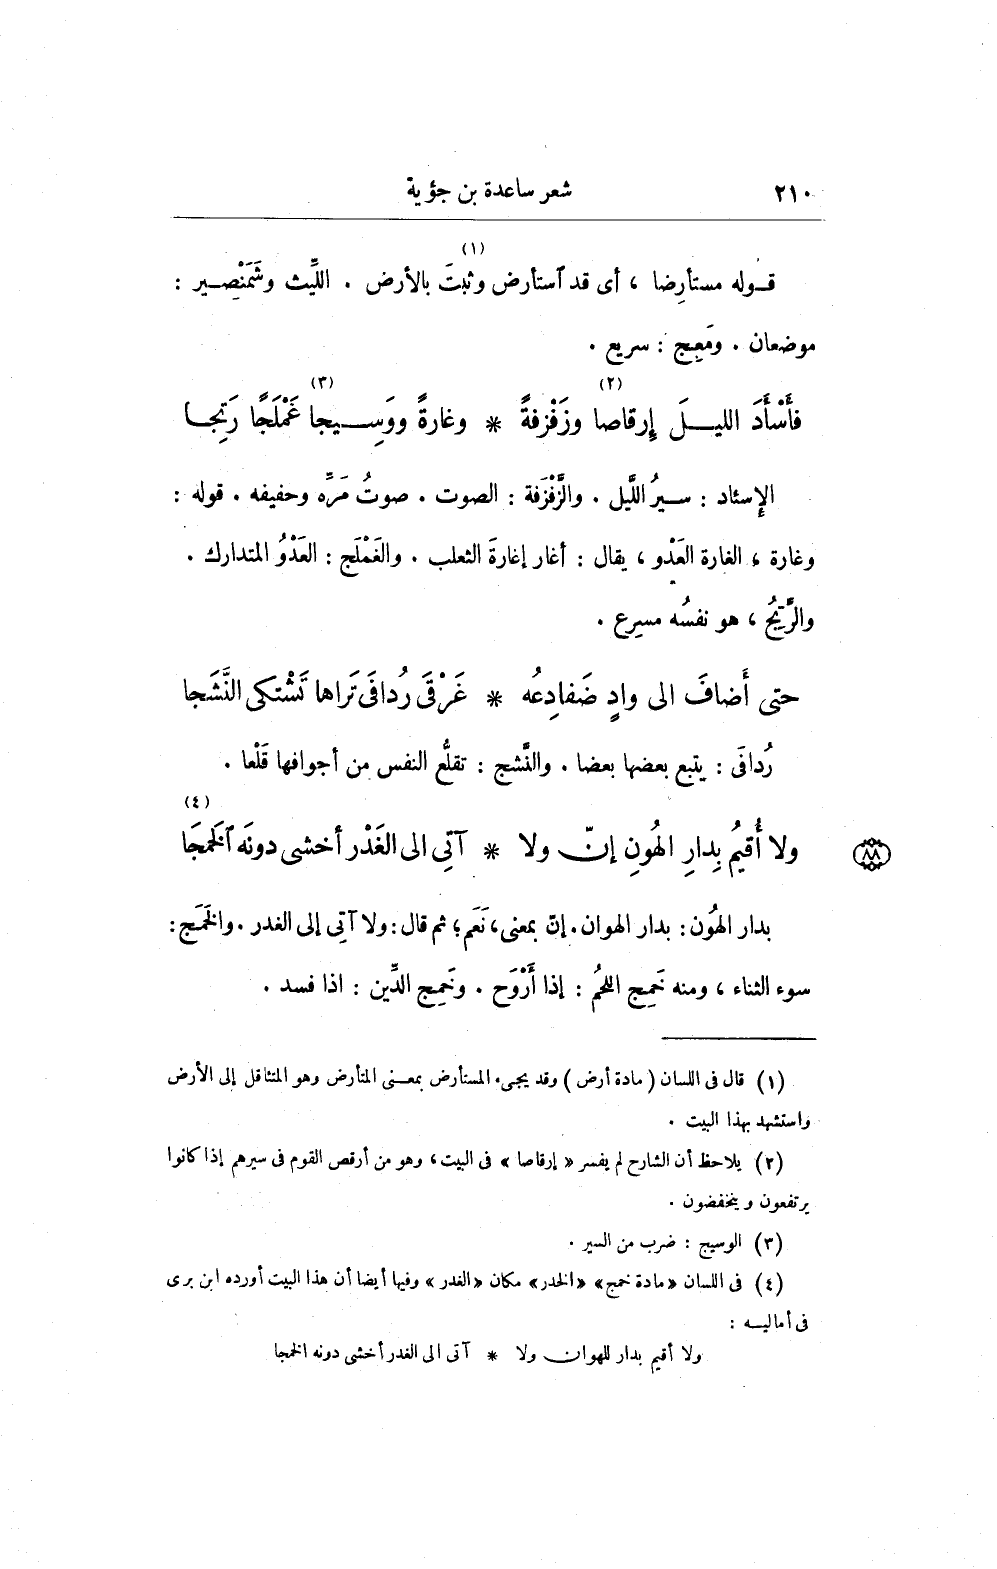 ٢١٠ شعر ساعدة بن جؤية
(١)
قـوله مستأرِضا ، أى قد ٱستأرض وثبتَ بالأرض . اللِّيث وشَمَنْصِـير :
موضعان . ومَعِج : سريع .
(٢) (٣)
فأَسْأَدَ الليــلَ إرقاصا وزَفْزفةً * وغارةً ووَسِـيجا غَمْلَجًا رَتِجـا
الإسئاد : سـيرُ اللَّيل . والزَّفْزَفة : الصوت . صوتُ مَرِّه وحفيفه . قوله :
وغارة ، الغارة العَدْو ، يقال : أغار إغارةَ الثعلب . والغَمْلَج : العَدْوُ المتدارك .
والرَّتِجُ ، هو نفسُه مسرع .
حتى أَضافَ الى وادٍ ضَفادِعُه * غَرْقَى رُدافَى تَراها تَشْتكى النَّشَجا
رُدافَى : يتبع بعضها بعضا . والنَّشج : تقلُّع النفس من أجوافها قَلْعا .
(٤)
ولا أُقيمُ بِدارِ الهُونِ إنّ ولا * آتِى الى الغَدْر أخشى دونَه ٱلخَمجَا
٨٨
بدار الهُون : بدار الهوان . إنّ بمعنى، نَعَم؛ ثم قال : ولا آتِى إلى الغدر . والخَمَج :
سوء الثناء ، ومنه خَمِج اللحُم : إذا أَرْوَح . وخَمِج الدِّين : اذا فسد .
(١) قال فى اللسان ( مادة أرض ) وقد يجىء المستأرض بمعـنى المتأرض وهو المتثاقل إلى الأرض
واستشهد بهذا البيت .
(٢) يلاحظ أن الشارح لم يفسر « إرقاصا » فى البيت، وهو من أرقص القوم فى سيرهم إذا كانوا
يرتفعون وينخفضون .
(٣) الوسيج : ضرب من السير .
(٤) فى اللسان «مادة خمج» «الخدر» مكان «الغدر» وفيها أيضا أن هذا البيت أورده ابن برى
فى أماليـه :
ولا أقيم بدار للهوان ولا * آتى الى الغدر أخشى دونه الخمجا